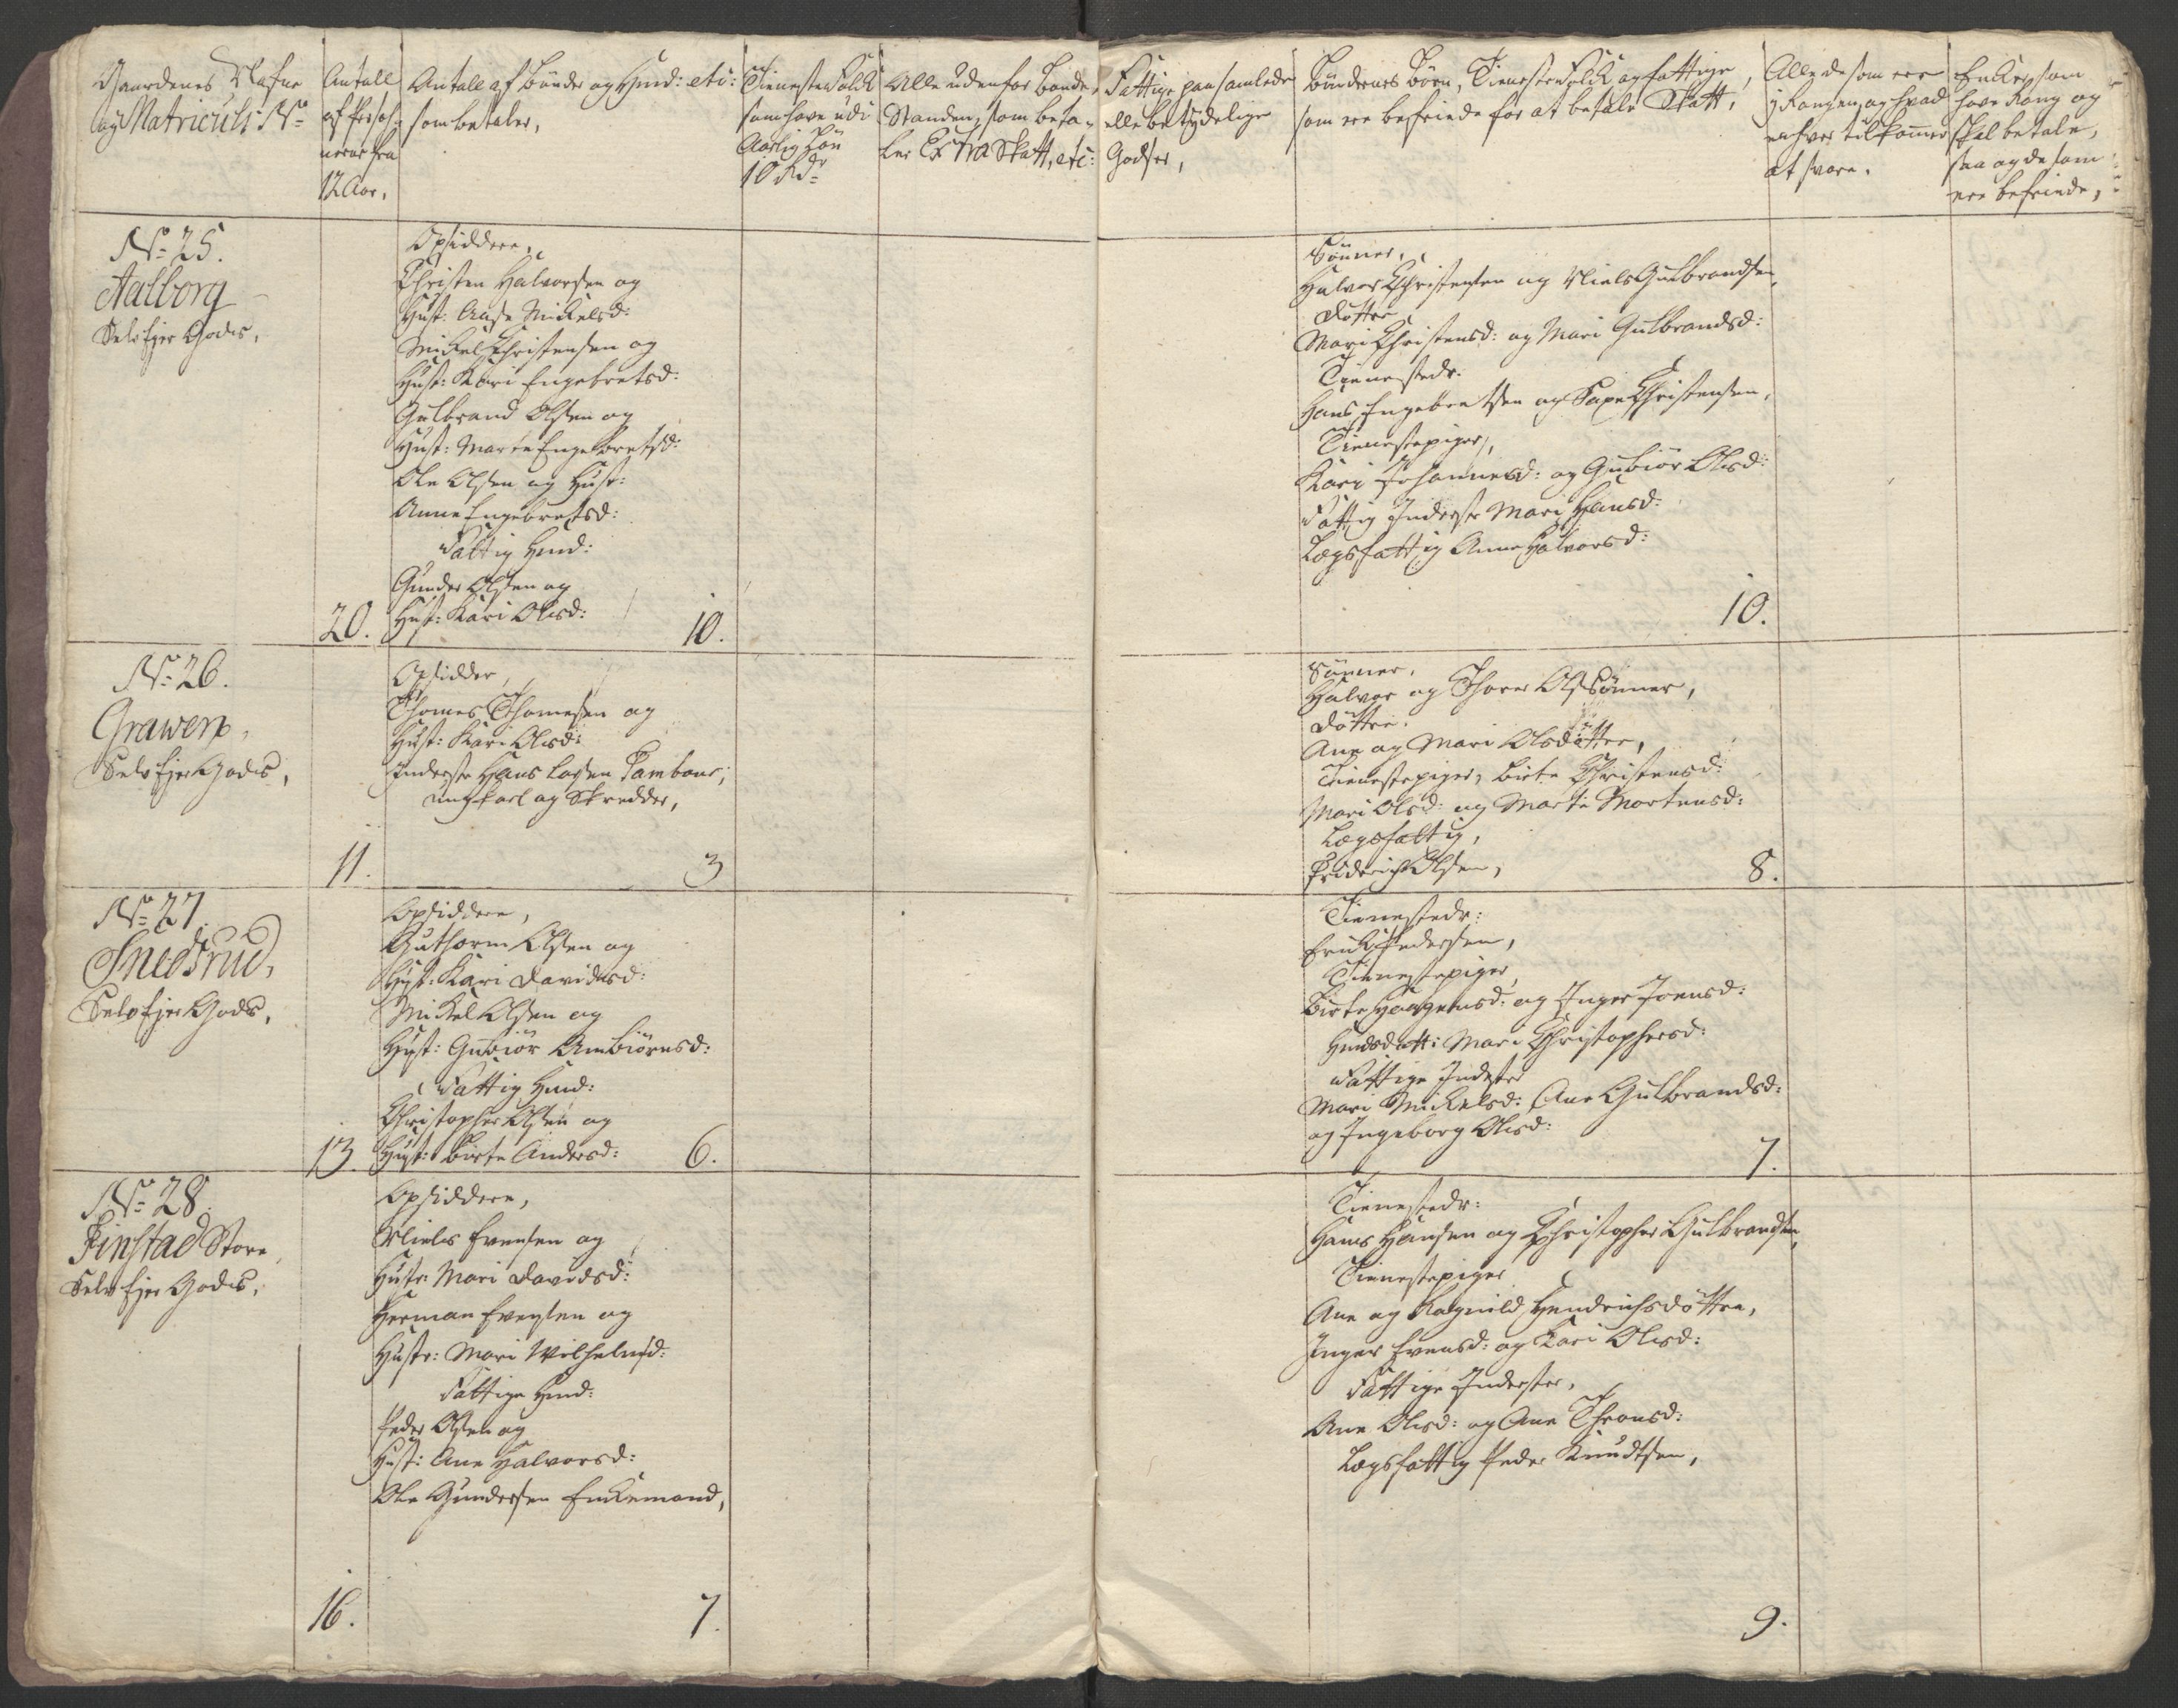 Gaardenes Nafne
og Matriculs No
Antall
af Perso-
nerne fra
12 Aar,
Antall af bönder og Huusm: etc:
som betaler,
Tieneste Folck
som have udi
Aarlig Lön
10 Rd:
Alle udenfor Bonde
Standen, som beta-
ler Extra Skatt, etc:
Fattige paa samlede
eller betydelige
Godser,
Böndernes Börn, Tieneste Folck og fattige,
som ere befriede for at betale Skatt,
Alle de som ere
j Rangen, og hvad
enhver tilkommer
at svare.
Encker, som
have Rang og
skal betale,
saa og de som
ere befriede,
No 25.
Aalborg
Selv Ejer Gods,
20.
Opsiddere,
Christen Halvorsen og
Hust: Anne Mickelsd:
Mickel Christensen og
Hust: Kari Engebretsd:
Gulbrand Olsen og
Hust: Marte Engebretsd:
Ole Olsen og Hust:
Anne Engebretsd:
Fattig Huusm:
Gunder Olsen og
Hust: Kari Olsd:
10.
Sönner,
Halvor Christensen og Niels Gulbrandsen,
Döttre
Mari Christensd: og Mari Gulbrandsd:
Tienestedr:
Hans Engebretsen og Saxe Christensen,
Tienestepiger,
Kari Johannesd: og Gubiör Olsd:
Fattig Inderste Mari Hansd:
Lægsfattig Anne Halvorsd:
10.
No 26.
Grawern,
Selv Ejer Gods,
11.
Opsidder,
Thomes Thomesen og
Hust: Kari Olsd:
Inderste Hans Larsen Tambour,
ungkarl og Skredder,
3
Sönner,
Halvor og Thorer Olssönner,
Döttre.
Ane og Mari Olsdöttre,
Tienestepiger, Birte Christensd:
Mari Olsd: og Marte Mortensd:
Lægsfattig,
Friderich Olsen,
8.
No 27.
Snedsrud,
Selv Ejer Gods,
13.
Opsiddere,
Guthorm Olsen og
Hust: Kari Davidsd:
Mickel Olsen og
Hust: Gubiör Ambiörnsd:
Fattig Huusm:
Christopher Olsen og
Hust: Birte Andersd:
6.
Tienestedr:
Erick Pedersen,
Tienestepiger,
Birte Haagensd: og Inger Joensd:
Huusdatt: Mari Christophersd:
Fattige Inderster
Mari Mickelsd: Ane Gulbrandsd:
og Ingeborg Olsd:
7.
No 28.
Finstad Store,
Selv Ejer Gods,
16.
Opsiddere,
Niels Evensen og
Hustr: Mari Davidsd:
Herman Evensen og
Hustr: Mari Wilhelmsd:
Fattige Huusm:
Peder Olsen og
Hust: Ane Halvorsd:
Ole Gundersen Enckemand,
7.
Tienestedr:
Hans Hansen og Christopher Gulbrandsen,
Tienestepiger
Ane og Ragnild Hendrichsdöttre,
Inger Evensd: og Kari Olsd:
Fattige Inderster,
Ane Olsd: og Ane Thronsd:
Lægsfattig Peder Knudtsen,
9.